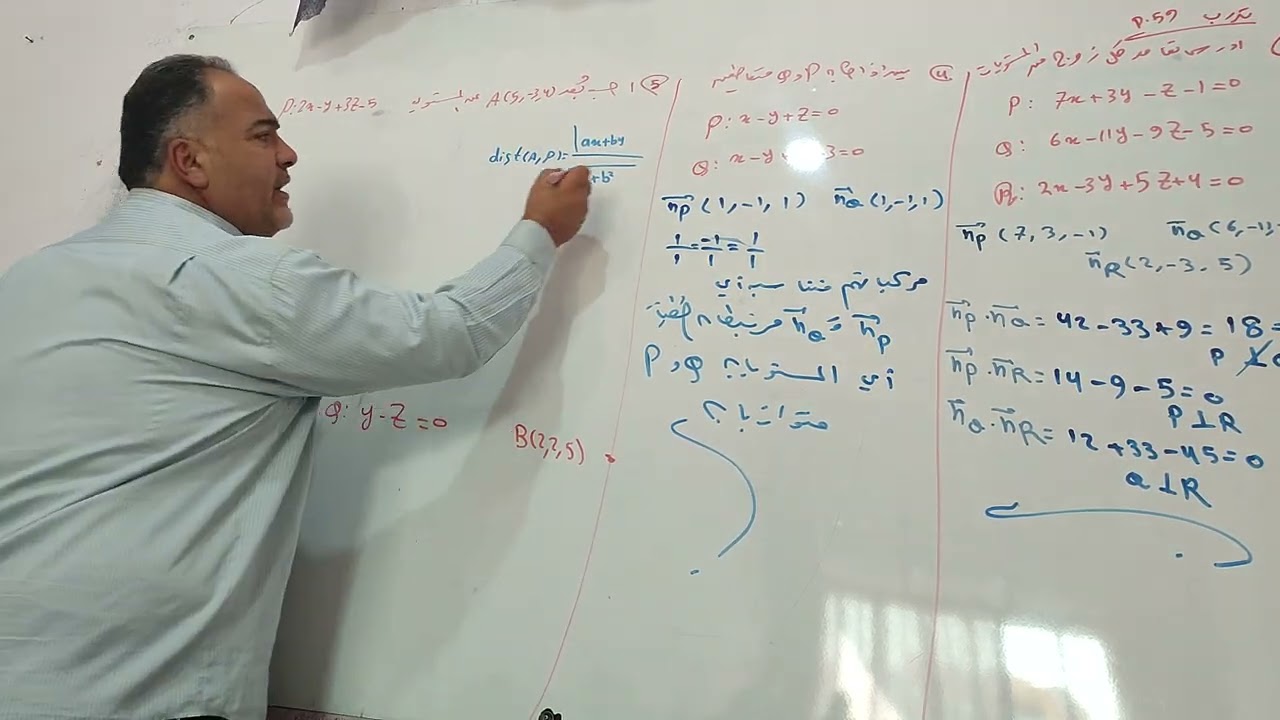 تدرب p.59
P: 7x+3y-z-1=0
Q: 6x-11y-9z-5=0
R: 2x-3y+5z+4=0
n⃗P (7, 3, -1) n⃗Q (6, -11,
n⃗R (2, -3, 5)
n⃗P . n⃗Q = 42-33+9=18
P
n⃗P . n⃗R = 14-9-5=0
P⊥R
n⃗Q . n⃗R = 12+33-45=0
Q⊥R
④ P و Q
P: x-y+z=0
Q: x-y 3=0
n⃗P (1, -1, 1) n⃗Q (1, -1, 1)
1/1 = -1/1 = 1/1
مركباتهم متناسبة أي
n⃗P و n⃗Q مرتبطان خطياً
أي المستويان Q و P
متوازيان
⑤ 1 احسب بُعد A(5,-3,4) عن المستوي P: 2x-y+3z-5
dist(A, P) = |ax+by
+b²
Q: y-z=0
B(2,2,5)